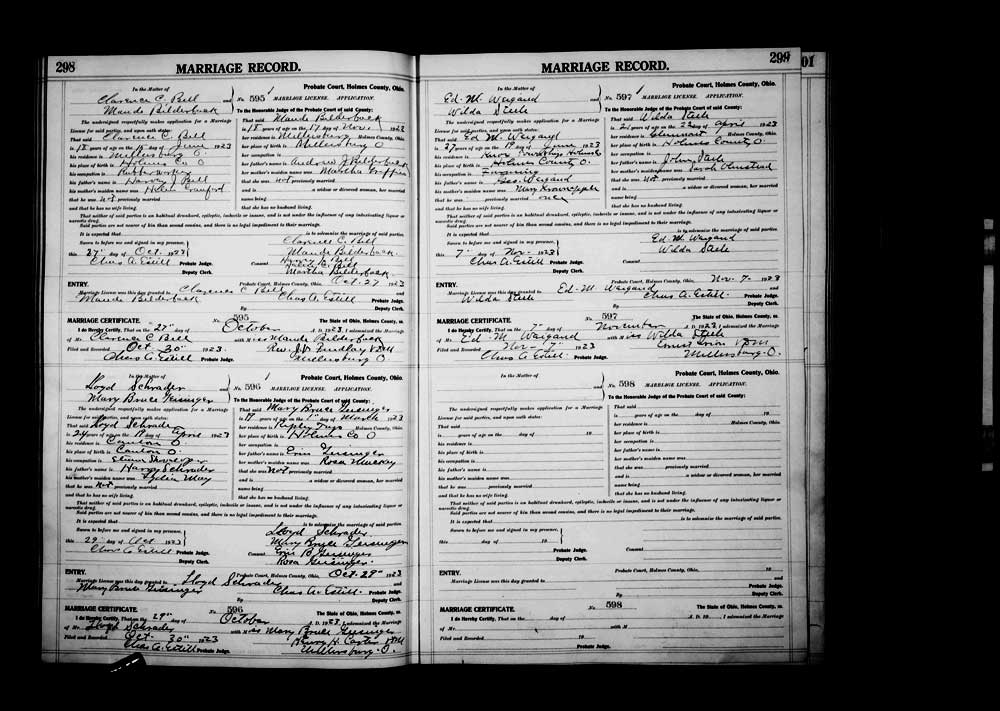 298
MARRIAGE RECORD.
In the Matter of
Clarence C. Bell
and
Maude Bilderback
No. 595
Probate Court, Holmes County, Ohio.
MARRIAGE LICENSE. APPLICATION.
To the Honorable Judge of the Probate Court of said County:
The undersigned respectfully makes application for a Marriage
License for said parties, and upon oath states:
That said Clarence C. Bell
is 18 years of age on the day of June 1923
his residence is Millersburg O.
his place of birth is Holmes Co O
his occupation is Rubber worker
his father's name is Harvey J Bell
his mother's maiden name was Helen Crawford
that he was not previously married
and that he has no wife living.
That said Maude Bilderback
is 18 years of age on the 17 day of Nov. 1923
her residence is Millersburg Holmes County, Ohio.
her place of birth is Millersburg O
her occupation is
her father's name is Andrew J Bilderback
her mother's maiden name was Martha Griffin
that she was not previously married
and is a widow or divorced woman, her married
name being
that she has no husband living.
That neither of said parties is an habitual drunkard, epileptic, imbecile or insane, and is not under the influence of any intoxicating liquor or
narcotic drug.
Said parties are not nearer of kin than second cousins, and there is no legal impediment to their marriage.
It is expected that is to solemnize the marriage of said parties.
Sworn to before me and signed in my presence,
this 27" day of Oct. 1923
Chas A. Estill Probate Judge.
Deputy Clerk.
Clarence C. Bell
Maude Bilderback.
Consent
Martha Bilderback.
ENTRY.
Probate Court, Holmes County, Ohio, Oct. 27 1923
Marriage License was this day granted to Clarence C Bell and
Maude Bilderback
Chas A. Estill Probate Judge.
By Deputy Clerk.
MARRIAGE CERTIFICATE.
No. 595
The State of Ohio, Holmes County, ss.
I do Hereby Certify, That on the 27" day of October A. D. 1923, I solemnized the Marriage
of Mr. Clarence C Bell with Miss Maude Bilderback
Filed and Recorded Oct 30" 1923. Rev. J. D. Findlay V.D.M
Chas A. Estill Millersburg O.
In the Matter of
Lloyd Schrader
and
Mary Bruce Geisinger
No. 596
Probate Court, Holmes County, Ohio.
MARRIAGE LICENSE. APPLICATION.
To the Honorable Judge of the Probate Court of said County:
The undersigned respectfully makes application for a Marriage
License for said parties, and upon oath states:
That said Lloyd Schrader
is 24 years of age on the 9 day of April 1923
his residence is Canton O.
his place of birth is Canton O.
his occupation is
his father's name is Harry Schrader
his mother's maiden name was Lydia May
that he was Not previously married
and that he has no wife living.
That said Mary Bruce Geisinger
is 19 years of age on the 1" day of March 1923
her residence is Ripley Twp Holmes County, Ohio.
her place of birth is Holmes Co O
her occupation is
her father's name is Geisinger
her mother's maiden name was Rosa Mackey
that she was Not previously married
and is a widow or divorced woman, her married
name being
that she has no husband living.
That neither of said parties is an habitual drunkard, epileptic, imbecile or insane, and is not under the influence of any intoxicating liquor or
narcotic drug.
Said parties are not nearer of kin than second cousins, and there is no legal impediment to their marriage.
It is expected that is to solemnize the marriage of said parties.
Sworn to before me and signed in my presence,
this 29" day of Oct 1923
Chas A. Estill Probate Judge.
Deputy Clerk.
Lloyd Schrader
Mary Bruce Geisinger
Consent B. Geisinger
Rosa Geisinger.
ENTRY.
Probate Court, Holmes County, Ohio, Oct. 29" 1923
Marriage License was this day granted to Lloyd Schrader and
Mary Bruce Geisinger
Chas A. Estill. Probate Judge.
By Deputy Clerk.
MARRIAGE CERTIFICATE.
No. 596
The State of Ohio, Holmes County, ss.
I do Hereby Certify, That on the 29" day of October A. D. 1923, I solemnized the Marriage
of Mr. Lloyd Schrader with Miss Mary Bruce Geisinger
Filed and Recorded Oct. 30" 1923 Henry H. VDM
Chas A. Estill Probate Judge. Millersburg. O.
299
01
MARRIAGE RECORD.
In the Matter of
Ed. M. Weigand
and
Wilda Steele
No. 597
Probate Court, Holmes County, Ohio.
MARRIAGE LICENSE. APPLICATION.
To the Honorable Judge of the Probate Court of said County:
The undersigned respectfully makes application for a Marriage
License for said parties, and upon oath states:
That said Ed M. Weigand
is 27 years of age on the 19 day of June 1923
his residence is Knox Township Holmes Co
his place of birth is Holmes County O.
his occupation is Farming
his father's name is Geo. Weigand
his mother's maiden name was Mary
that he was previously married once
and that he has no wife living.
That said Wilda Steele
is 21 years of age on the day of April 1923
her residence is Glenmont Holmes County, Ohio.
her place of birth is Holmes County O.
her occupation is
her father's name is John Steele
her mother's maiden name was Sarah Olmstead
that she was Not previously married
and is a widow or divorced woman, her married
name being
that she has no husband living.
That neither of said parties is an habitual drunkard, epileptic, imbecile or insane, and is not under the influence of any intoxicating liquor or
narcotic drug.
Said parties are not nearer of kin than second cousins, and there is no legal impediment to their marriage.
It is expected that is to solemnize the marriage of said parties.
Sworn to before me and signed in my presence,
this 7" day of Nov. 1923
Chas A. Estill Probate Judge.
Deputy Clerk.
Ed. M. Waigand
Wilda Steele
Consent
ENTRY.
Probate Court, Holmes County, Ohio, Nov. 7- 1923
Marriage License was this day granted to Ed. M. Waigand and
Wilda Steele
Chas A. Estill. Probate Judge.
By Deputy Clerk.
MARRIAGE CERTIFICATE.
No. 597
The State of Ohio, Holmes County, ss.
I do Hereby Certify, That on the 7" day of November A. D. 1923, I solemnized the Marriage
of Mr. Ed. M Waigand with Miss Wilda Steele
Filed and Recorded Nov- 7" 1923 VDM
Chas A. Estill Probate Judge. Millersburg. O.
In the Matter of
and
No. 598
Probate Court, Holmes County, Ohio.
MARRIAGE LICENSE. APPLICATION.
To the Honorable Judge of the Probate Court of said County:
The undersigned respectfully makes application for a Marriage
License for said parties, and upon oath states:
That said
is years of age on the day of 19
his residence is
his place of birth is
his occupation is
his father's name is
his mother's maiden name was
that he was previously married
and that he has no wife living.
That said
is years of age on the day of 19
her residence is Holmes County, Ohio.
her place of birth is
her occupation is
her father's name is
her mother's maiden name was
that she was previously married
and is a widow or divorced woman, her married
name being
that she has no husband living.
That neither of said parties is an habitual drunkard, epileptic, imbecile or insane, and is not under the influence of any intoxicating liquor or
narcotic drug.
Said parties are not nearer of kin than second cousins, and there is no legal impediment to their marriage.
It is expected that is to solemnize the marriage of said parties.
Sworn to before me and signed in my presence,
this day of 19
Probate Judge.
Deputy Clerk.
Consent
ENTRY.
Probate Court, Holmes County, Ohio, 19
Marriage License was this day granted to and
Probate Judge.
By Deputy Clerk.
MARRIAGE CERTIFICATE.
No. 598
The State of Ohio, Holmes County, ss.
I do Hereby Certify, That on the day of A. D. 19 , I solemnized the Marriage
of Mr. with M
Filed and Recorded 19
Probate Judge.